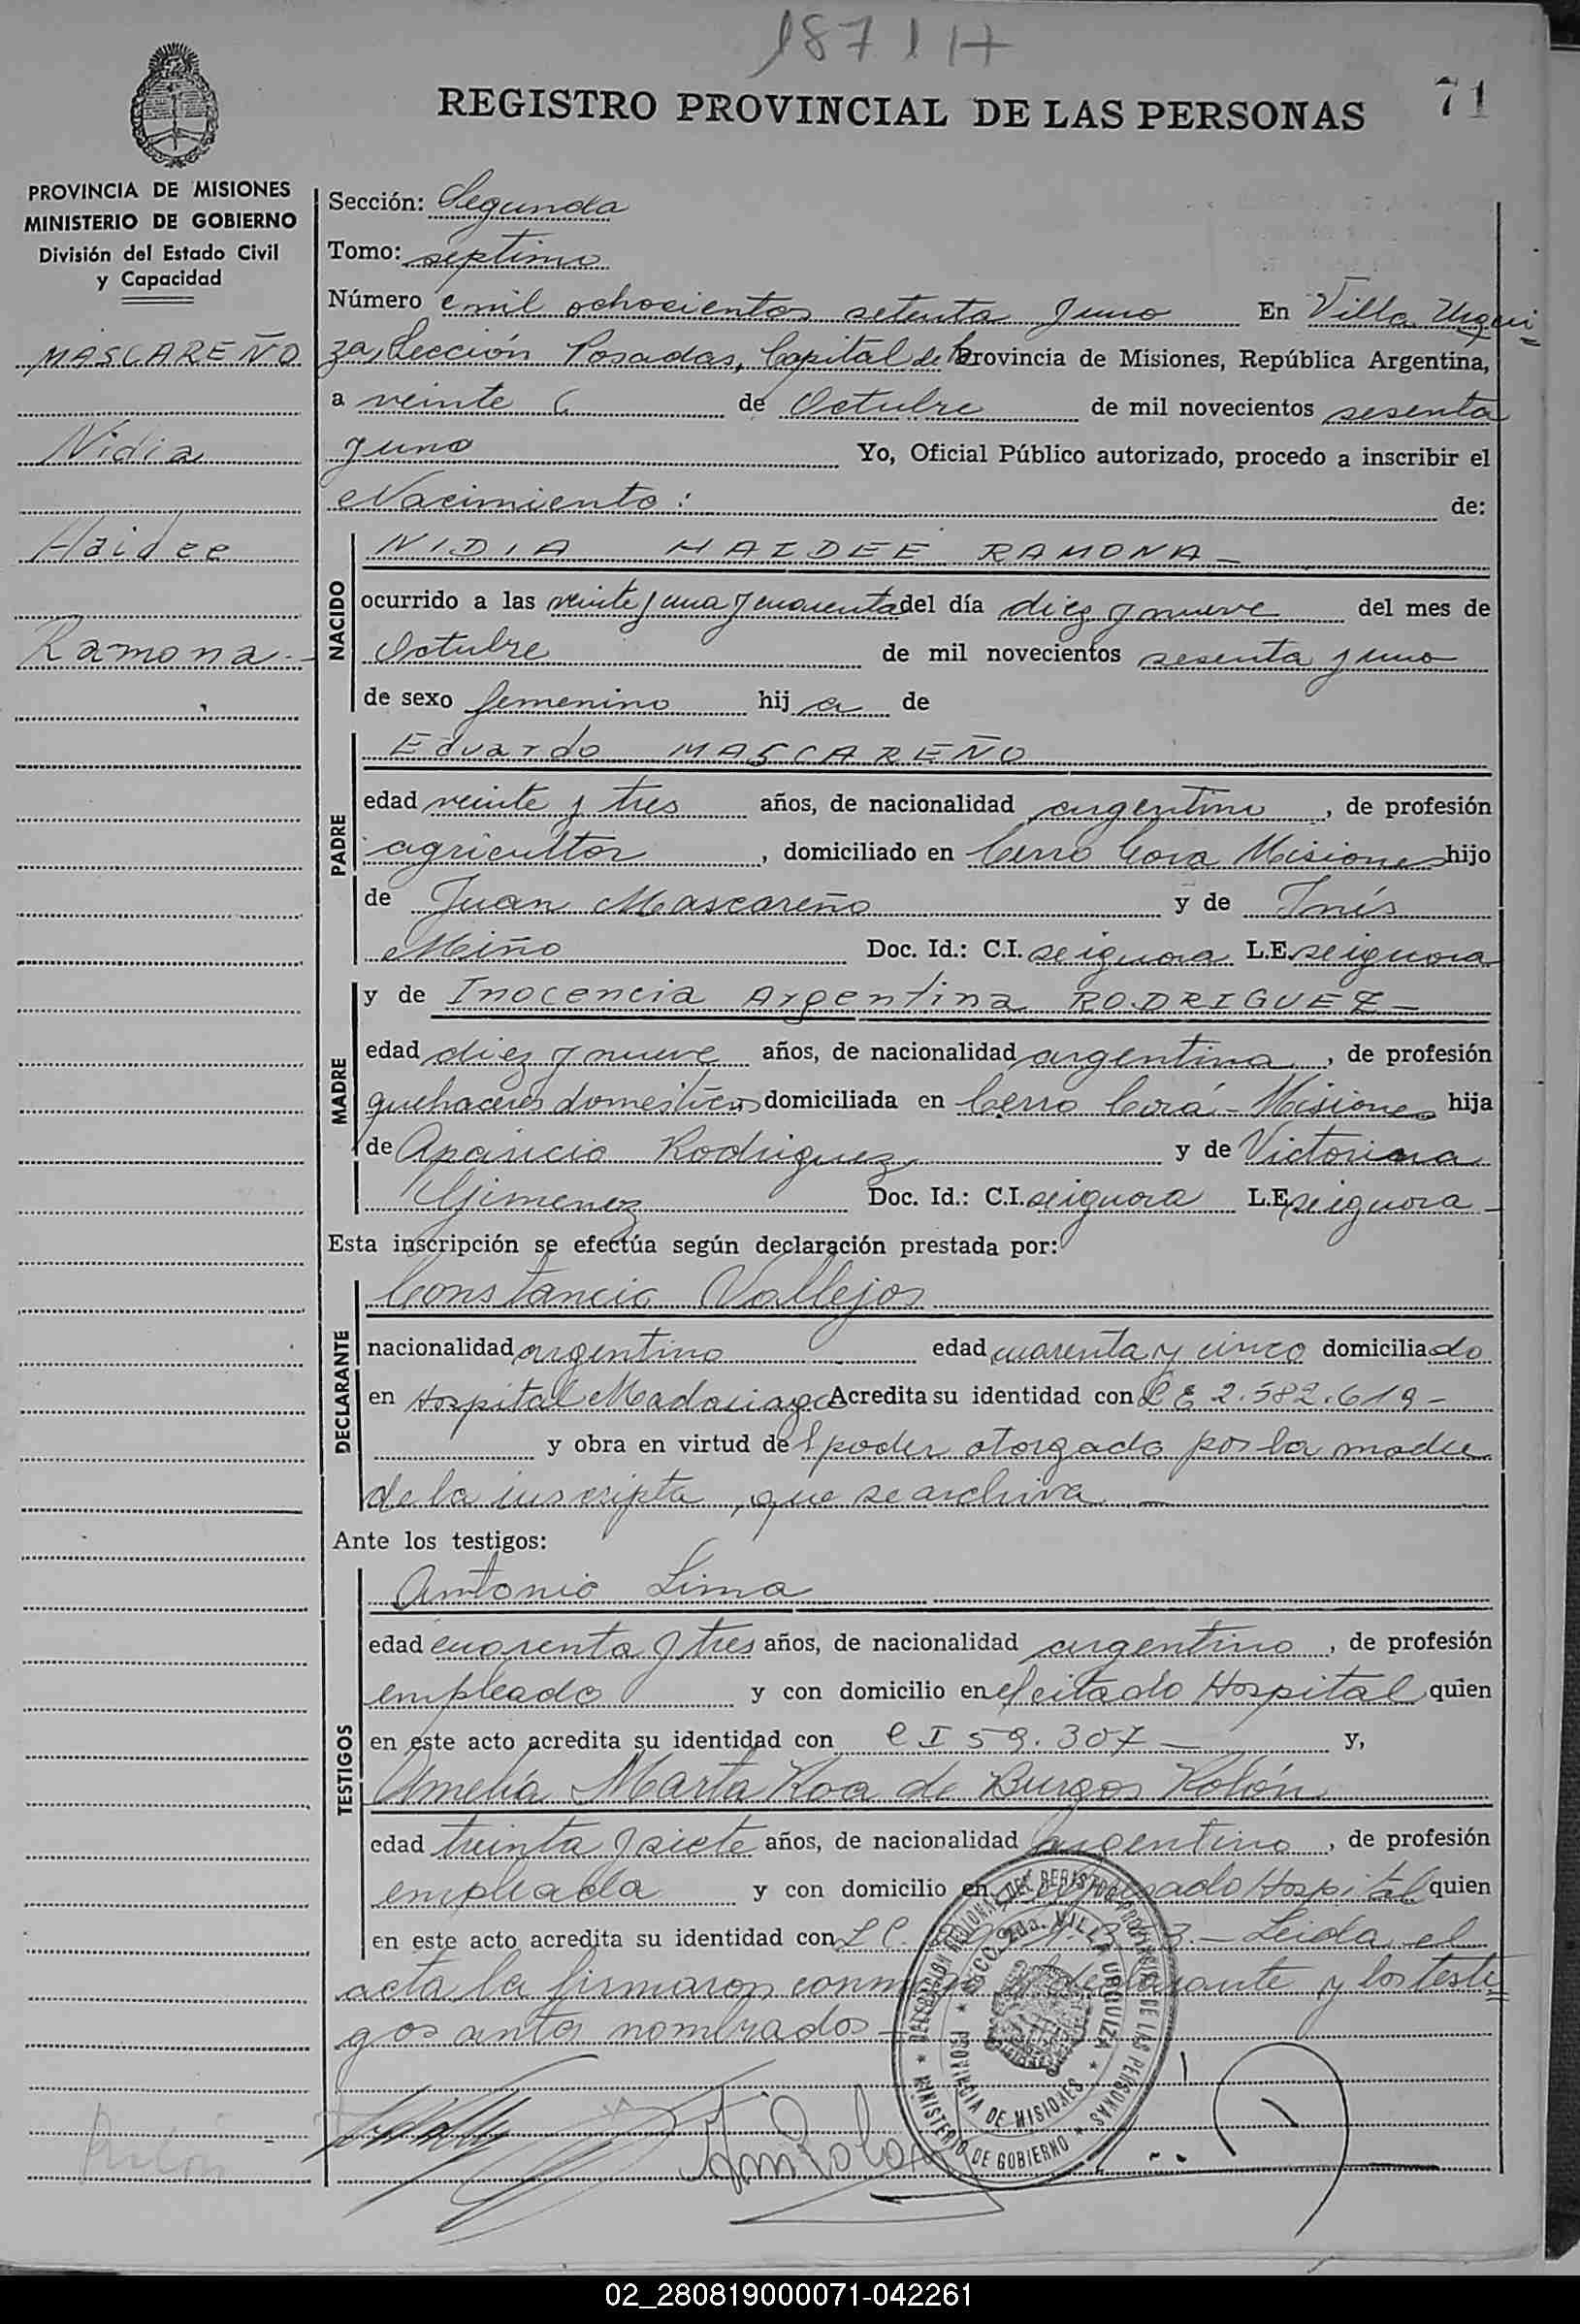 1871 H
REGISTRO PROVINCIAL DE LAS PERSONAS
71
PROVINCIA DE MISIONES
MINISTERIO DE GOBIERNO
División del Estado Civil
y Capacidad
MASCAREÑO
Nidia
Haidee
Ramona.-
Sección: Segunda
Tomo: septimo
Número mil ochocientos setenta y uno En Villa Urqui-
za, Sección Posadas, Capital de la Provincia de Misiones, República Argentina,
a veinte de Octubre de mil novecientos sesenta
y uno Yo, Oficial Público autorizado, procedo a inscribir el
Nacimiento: de:
NACIDO
NIDIA HAIDEE RAMONA -
ocurrido a las veinte y una y cuarenta del día diez y nueve del mes de
Octubre de mil novecientos sesenta y uno
de sexo femenino hija de
PADRE
Eduardo MASCAREÑO
edad veinte y tres años, de nacionalidad argentino, de profesión
agricultor, domiciliado en Cerro Cora Misiones hijo
de Juan Mascareño y de Inés
Miño Doc. Id.: C.I. se ignora L.E. se ignora
MADRE
y de Inocencia Argentina RODRIGUEZ -
edad diez y nueve años, de nacionalidad argentina, de profesión
quehaceres domesticos domiciliada en Cerro Corá - Misiones hija
de Aparicio Rodriguez y de Victorina
Gimenez Doc. Id.: C.I. se ignora L.E. se ignora -
Esta inscripción se efectúa según declaración prestada por:
DECLARANTE
Constancio Vallejos
nacionalidad argentino edad cuarenta y cinco domiciliado
en Hospital Madariaga Acredita su identidad con L E 2.582.619 -
y obra en virtud del poder otorgado por la madre
de la inscripta, que se archiva -
Ante los testigos:
TESTIGOS
Antonio Lima
edad cuarenta y tres años, de nacionalidad argentino, de profesión
empleado y con domicilio en el citado Hospital quien
en este acto acredita su identidad con C I 59.307 - y,
Amelia Marta Roa de Burgos Rolón
edad treinta y siete años, de nacionalidad argentino, de profesión
empleada y con domicilio en Hospital quien
en este acto acredita su identidad con L C. - Leida el
acta la firmaron declarante y los testi=
gos antes nombrados -
DELEGACION REGIONAL DEL REGISTRO PROVINCIAL DE LAS PERSONAS
MINISTERIO DE GOBIERNO
SECC. 2da. VILLA URQUIZA
PROVINCIA DE MISIONES
02_280819000071-042261